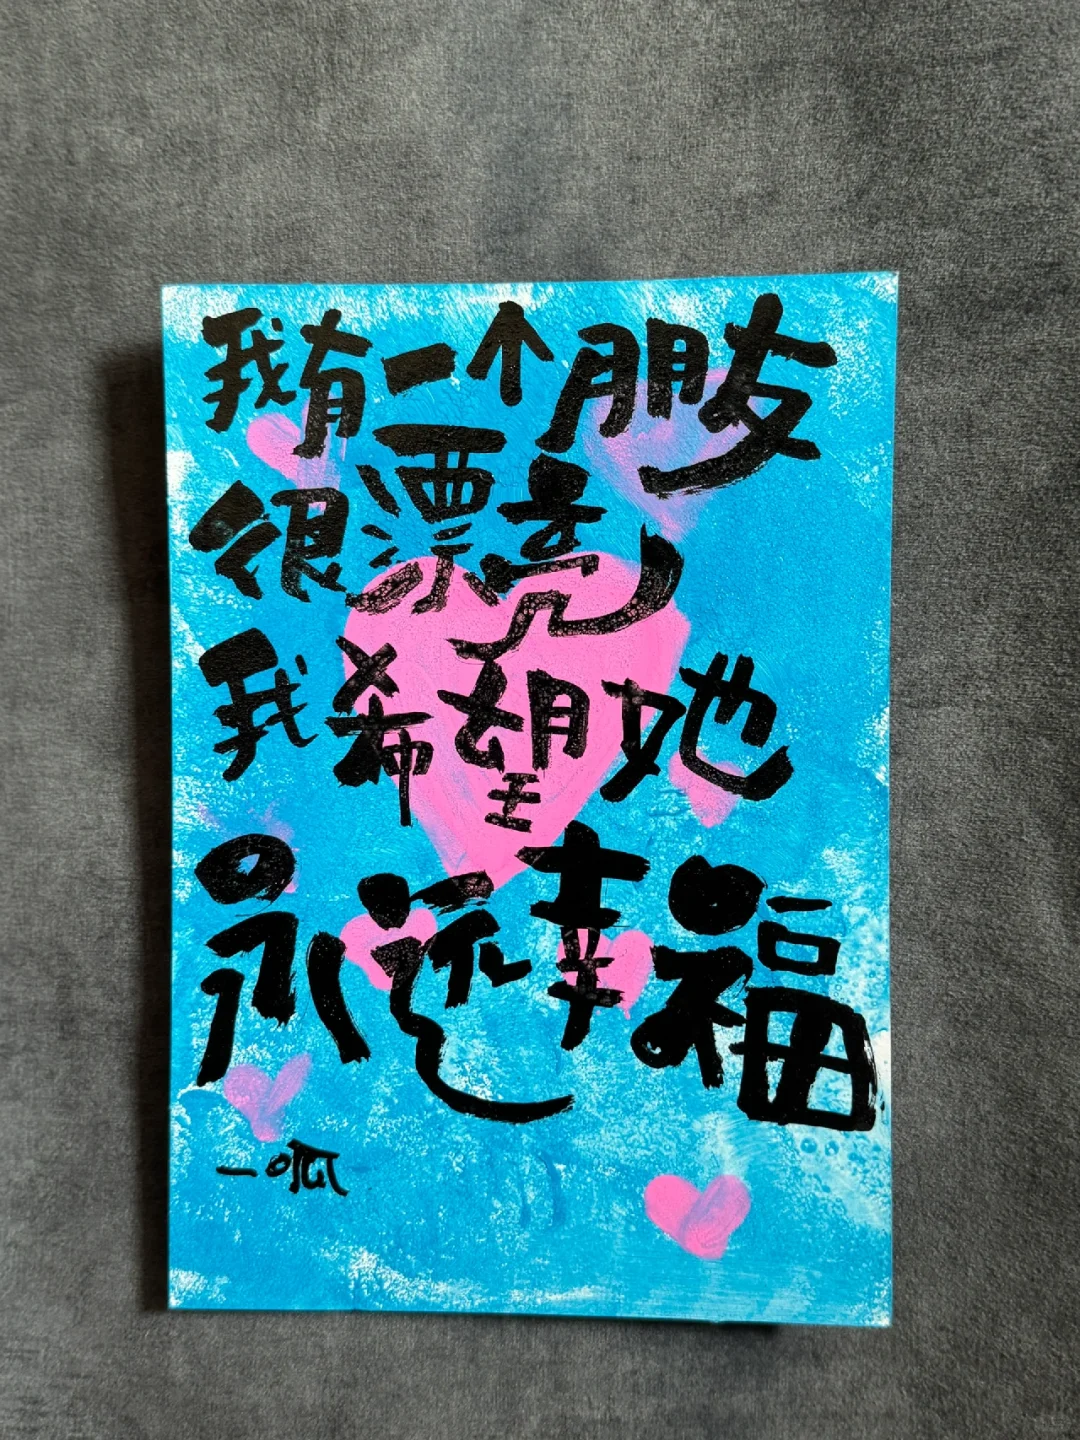 我有一个朋友
很漂亮
我希望她
永远幸福
一呱